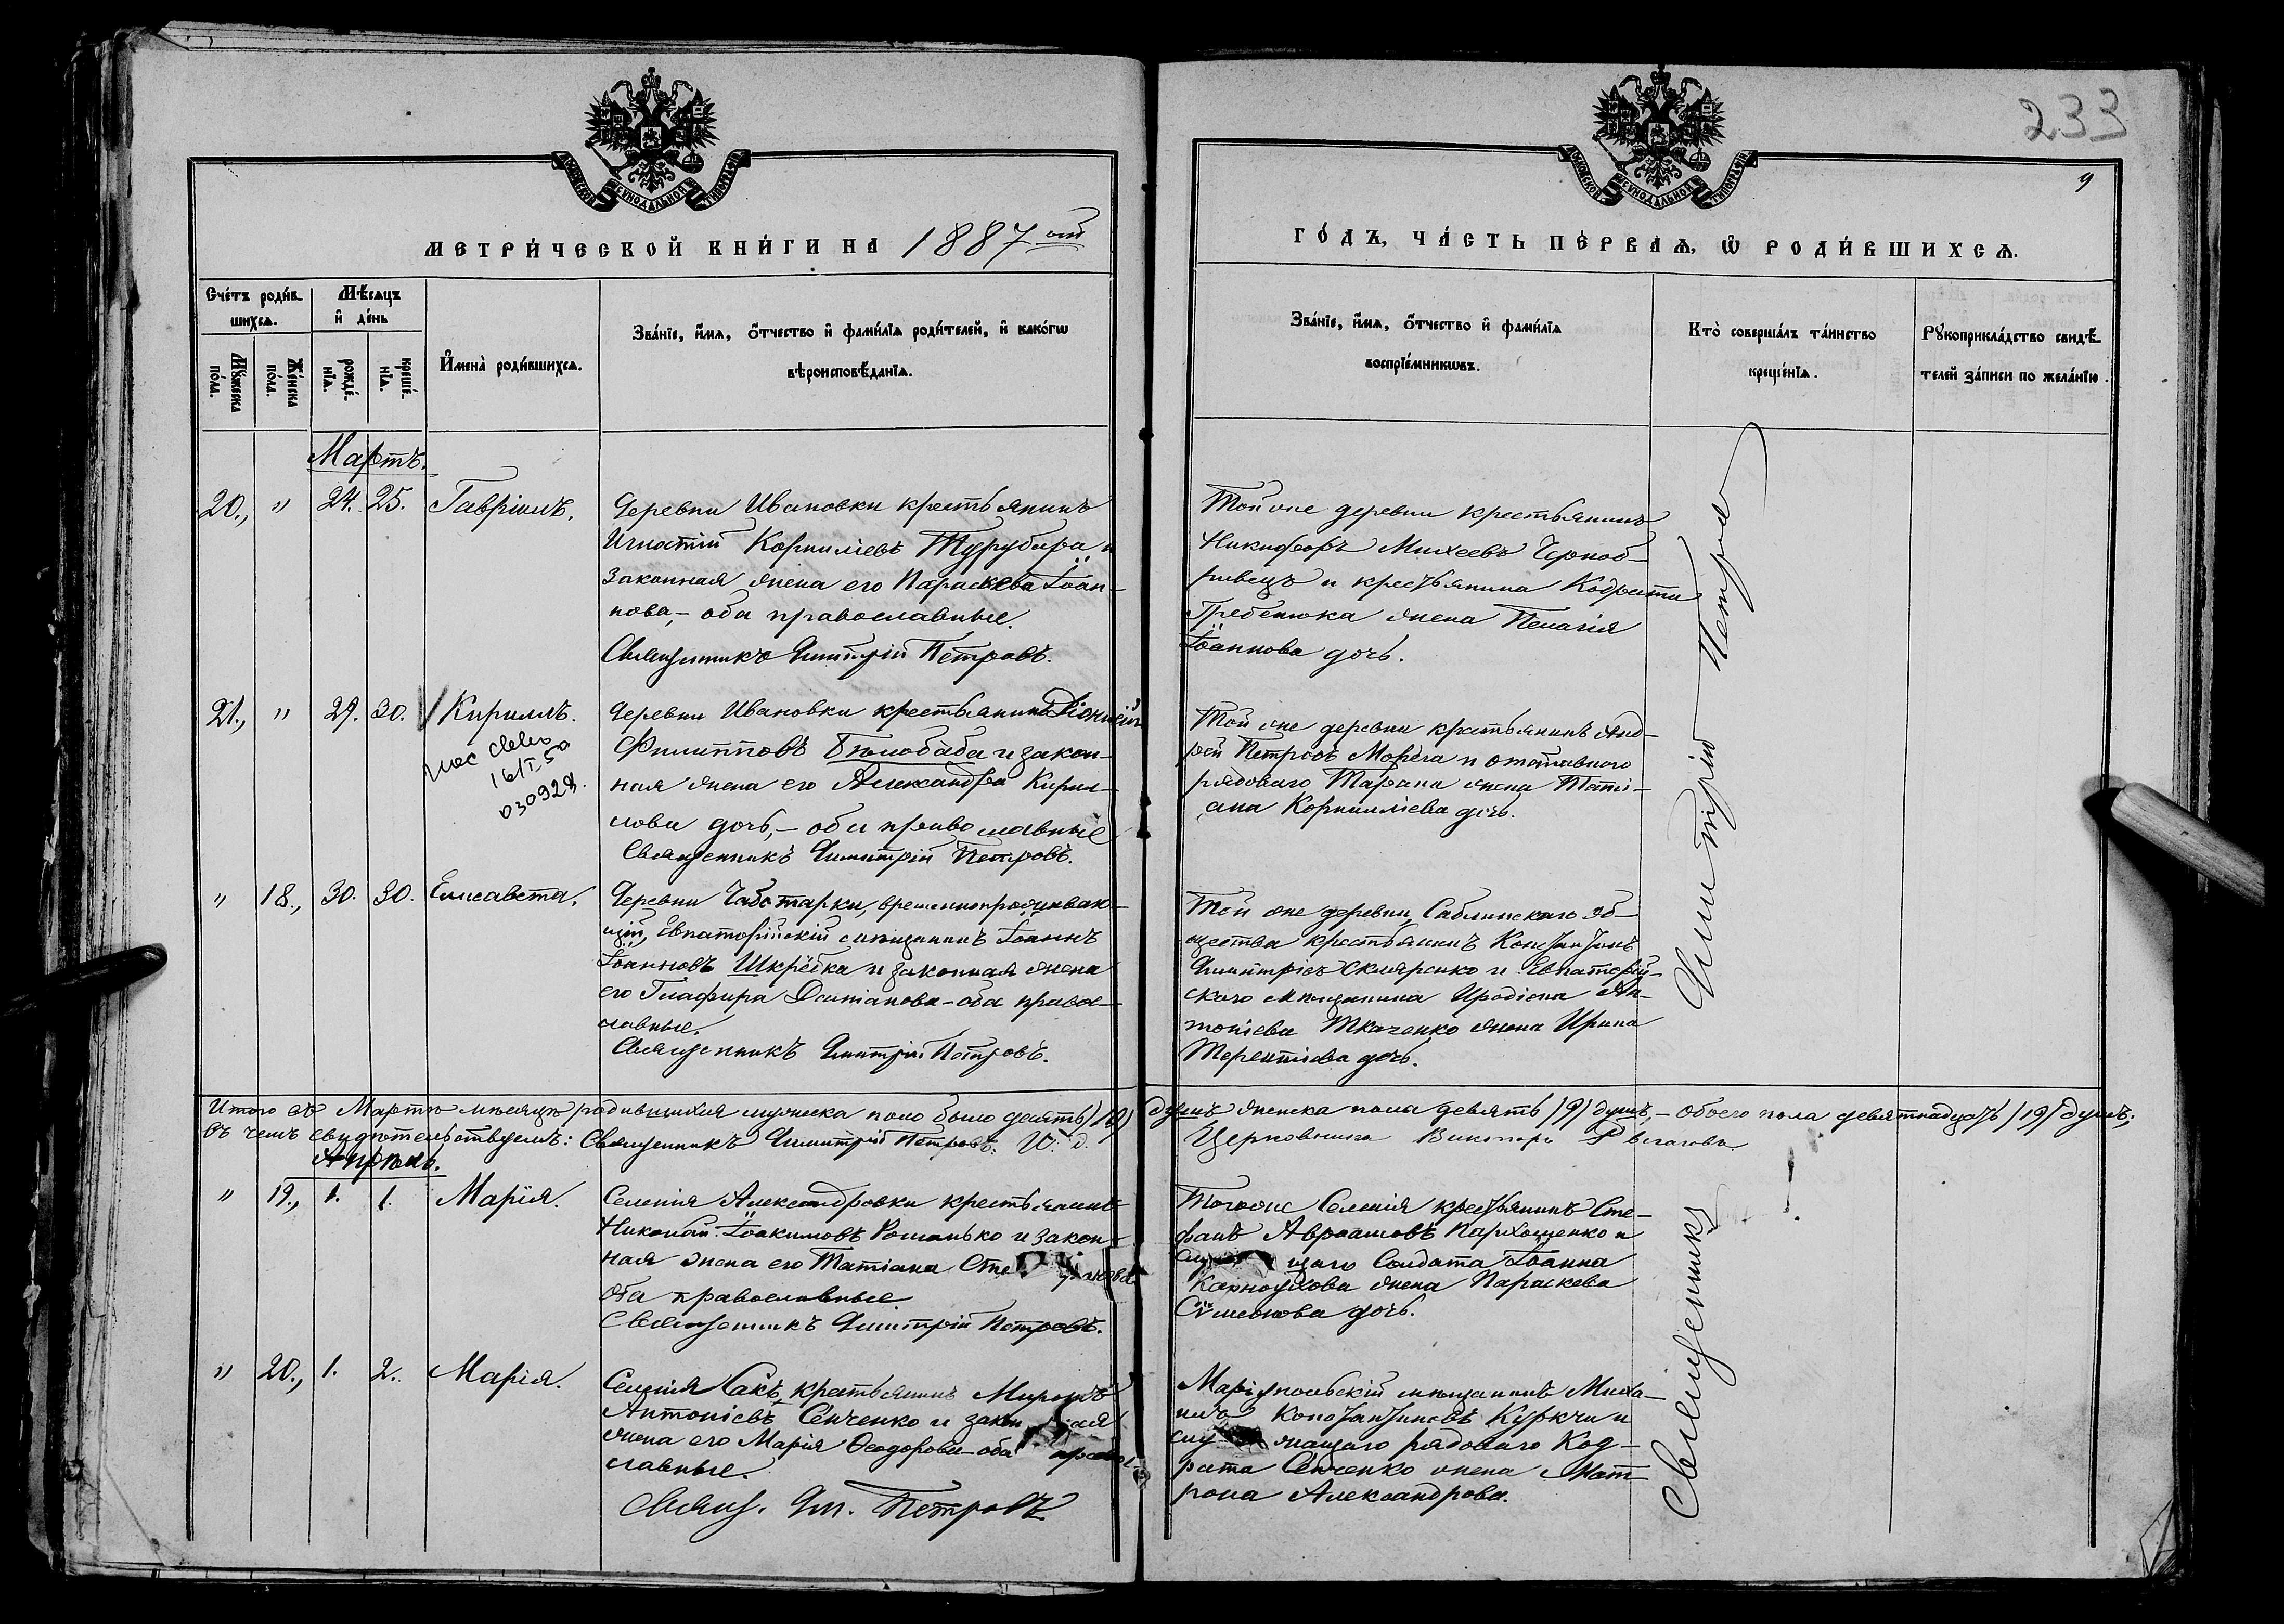 233
9
МЕТРИ́ЧЕСКОЙ КНИ́ГИ НА 1887 ой
ГО́ДЪ, ЧА́СТЬ ПЕ́РВАѦ, Ѡ РОДИ́ВШИХСѦ.
Сче́тъ роди́в-
шихсѧ.
Мѣ́сяцъ
и҆ де́нь
Мꙋ́жеска
по́ла.
Же́нска
по́ла.
рожде́-
нїѧ.
креще́-
нїѧ.
И҆мена̀ роди́вшихсѧ.
Зва́нїе, и҆́мѧ, ѻ҆́тчество и҆ фами́лїѧ роди́телей, и҆ како́гѡ
вѣроисповѣ́данїѧ.
Зва́нїе, и҆́мѧ, ѻ҆́тчество и҆ фами́лїѧ
воспрїе́мникѡвъ.
Кто̀ соверша́лъ та́инство
креще́нїѧ.
Рꙋкоприкла́дство свидѣ́-
телей за́писи по жела́нїю.
Мартъ.
20., " 24. 25. Гавріилъ.
Деревни Ивановки крестьянинъ
Игнатій Корниліевъ Турубара и
законная жена его Параскева Іоан-
нова,- оба православные.
Священникъ Димитрій Петровъ.
Той же деревни крестьянинъ
Никифоръ Михеевъ Черноб-
ривецъ и крестьянина Кодрата
Гребенюка жена Пелагія
Іоаннова дочь.
21., " 29. 30. Кириллъ.
16/I, 50
030928.
Деревни Ивановки крестьянинъ Діонисій
Филипповъ Бѣлобаба и закон-
ная жена его Александра Кирил-
лова дочь,- оба православные
Священникъ Димитрій Петровъ.
Той же деревни крестьянинъ Анд-
рей Петровъ Морега и отставнаго
рядоваго Тарана жена Тати-
ана Корнилліева дочь.
" 18., 30. 30. Елисавета.
Деревни Чаботарки, временнопроживаю-
щій, Евпаторійскій мѣщанинъ Іоаннъ
Іоанновъ Шкрёбка и законная жена
его Глафира Даміанова - оба право-
славные.
Священникъ Димитрій Петровъ.
Той же деревни, Саблинскаго об-
щества крестьянинъ Константинъ
Димитріевъ Скляренко и Евпаторій-
скаго мѣщанина Иродіона Ан-
тоніева Ткаченко жена Ирина
Терентіева дочь.
Итого въ Мартѣ мѣсяцѣ родившихся мужеска пола было десять /10/ душъ женска пола девять /9/ душъ,- обоего пола девятнадцать /19/ душъ;
въ чемъ свидѣтельствуемъ: Священникъ Димитрій Петровъ. И. д.
Апрѣль.
" 19., 1. 1. Марія.
Селенія Александровки крестьянинъ
Іоакимовъ Романько и закон-
ная жена его Татіана
Оба православные.
Священникъ Димитрій Петровъ.
Тогоже Селенія крестьянинъ Сте-
фанъ Авраамовъ Пархоменко и
щаго Солдата Іоанна
Карноухова жена Параскева
Сѵмеонова дочь.
" 20., 1. 2. Марія.
Селенія Сакъ, крестьянинъ Миронъ
Антоніевъ Сенченко и законная
жена его Марія Ѳеодорова - оба право-
славные.
Свящ. Дм. Петровъ
Маріупольскій мѣщанинъ Миха-
илъ Константиновъ Куркчи и
служащаго рядоваго Код-
рата Сенченко жена Мат-
рона Александрова.
Священникъ Димитрій Петровъ